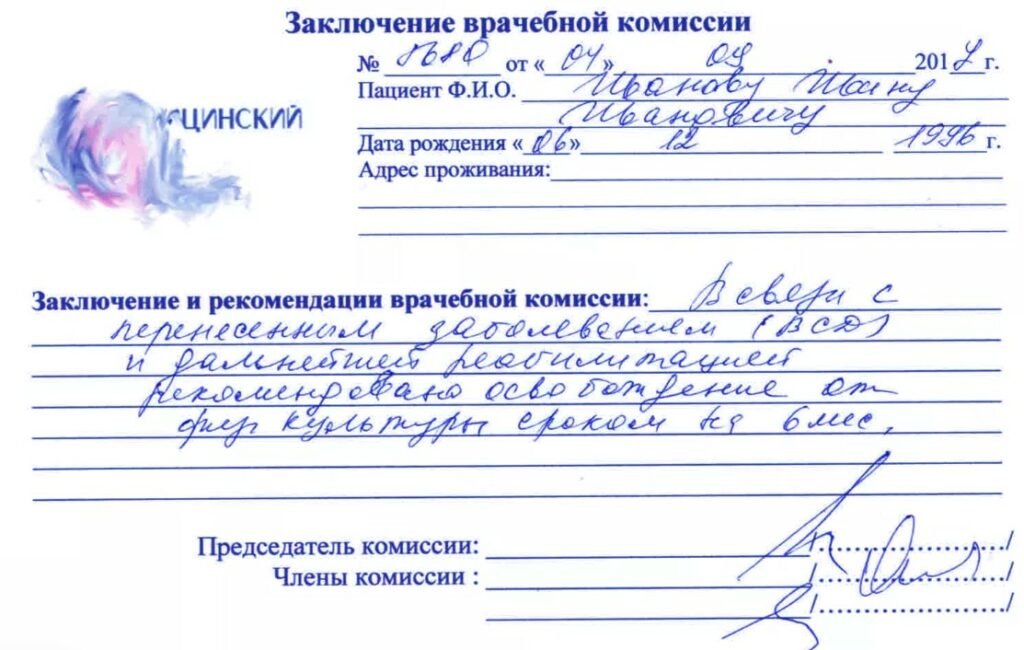 Заключение врачебной комиссии
№ 8680 от «04» 09 2017 г.
ЦИНСКИЙ
Пациент Ф.И.О. Иванову Ивану
Ивановичу
Дата рождения «06» 12 1996 г.
Адрес проживания:
Заключение и рекомендации врачебной комиссии: В связи с
перенесенным заболеванием (ВСД)
и дальнейшей реабилитацией
рекомендовано освобождение от
физ культуры сроком на 6 мес.
Председатель комиссии:
Члены комиссии :